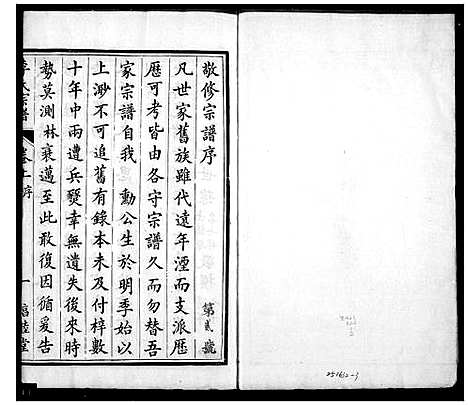 敬修宗譜序
第貳號
凡世家舊族雖代遠年湮而支派歷
歷可考皆由各守宗譜久而勿替吾
家宗譜自我勳公生於明季始以
上渺不可追舊有錄本未及付梓數
十年中兩遭兵燹幸無遺失後來時
勢莫測林衰邁至此敢復因循爰告
氏宗譜
卷上序
一
睦堂
251612-3